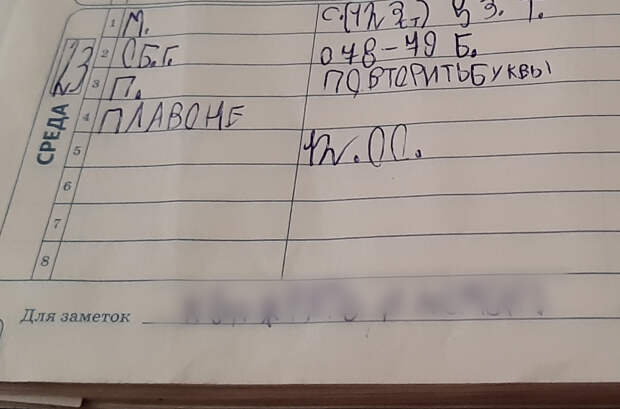 СРЕДА
23
1 М.
2 С Б.Г. 078-79 Б.
3 П. ПОВТОРИТЬ БУКВЫ
4 ПЛАВОНЕ
5 12.00.
6
7
8
Для заметок